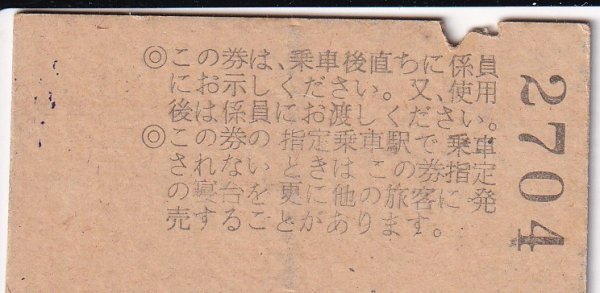 ◎この券は、乗車後直ちに、係員
にお示しください。又、使用
後は係員にお渡しください。
◎この券の指定乗車駅で乗車
されないときはこの券指定
の寝台を更に他の旅客に発
売することがあります。
2704